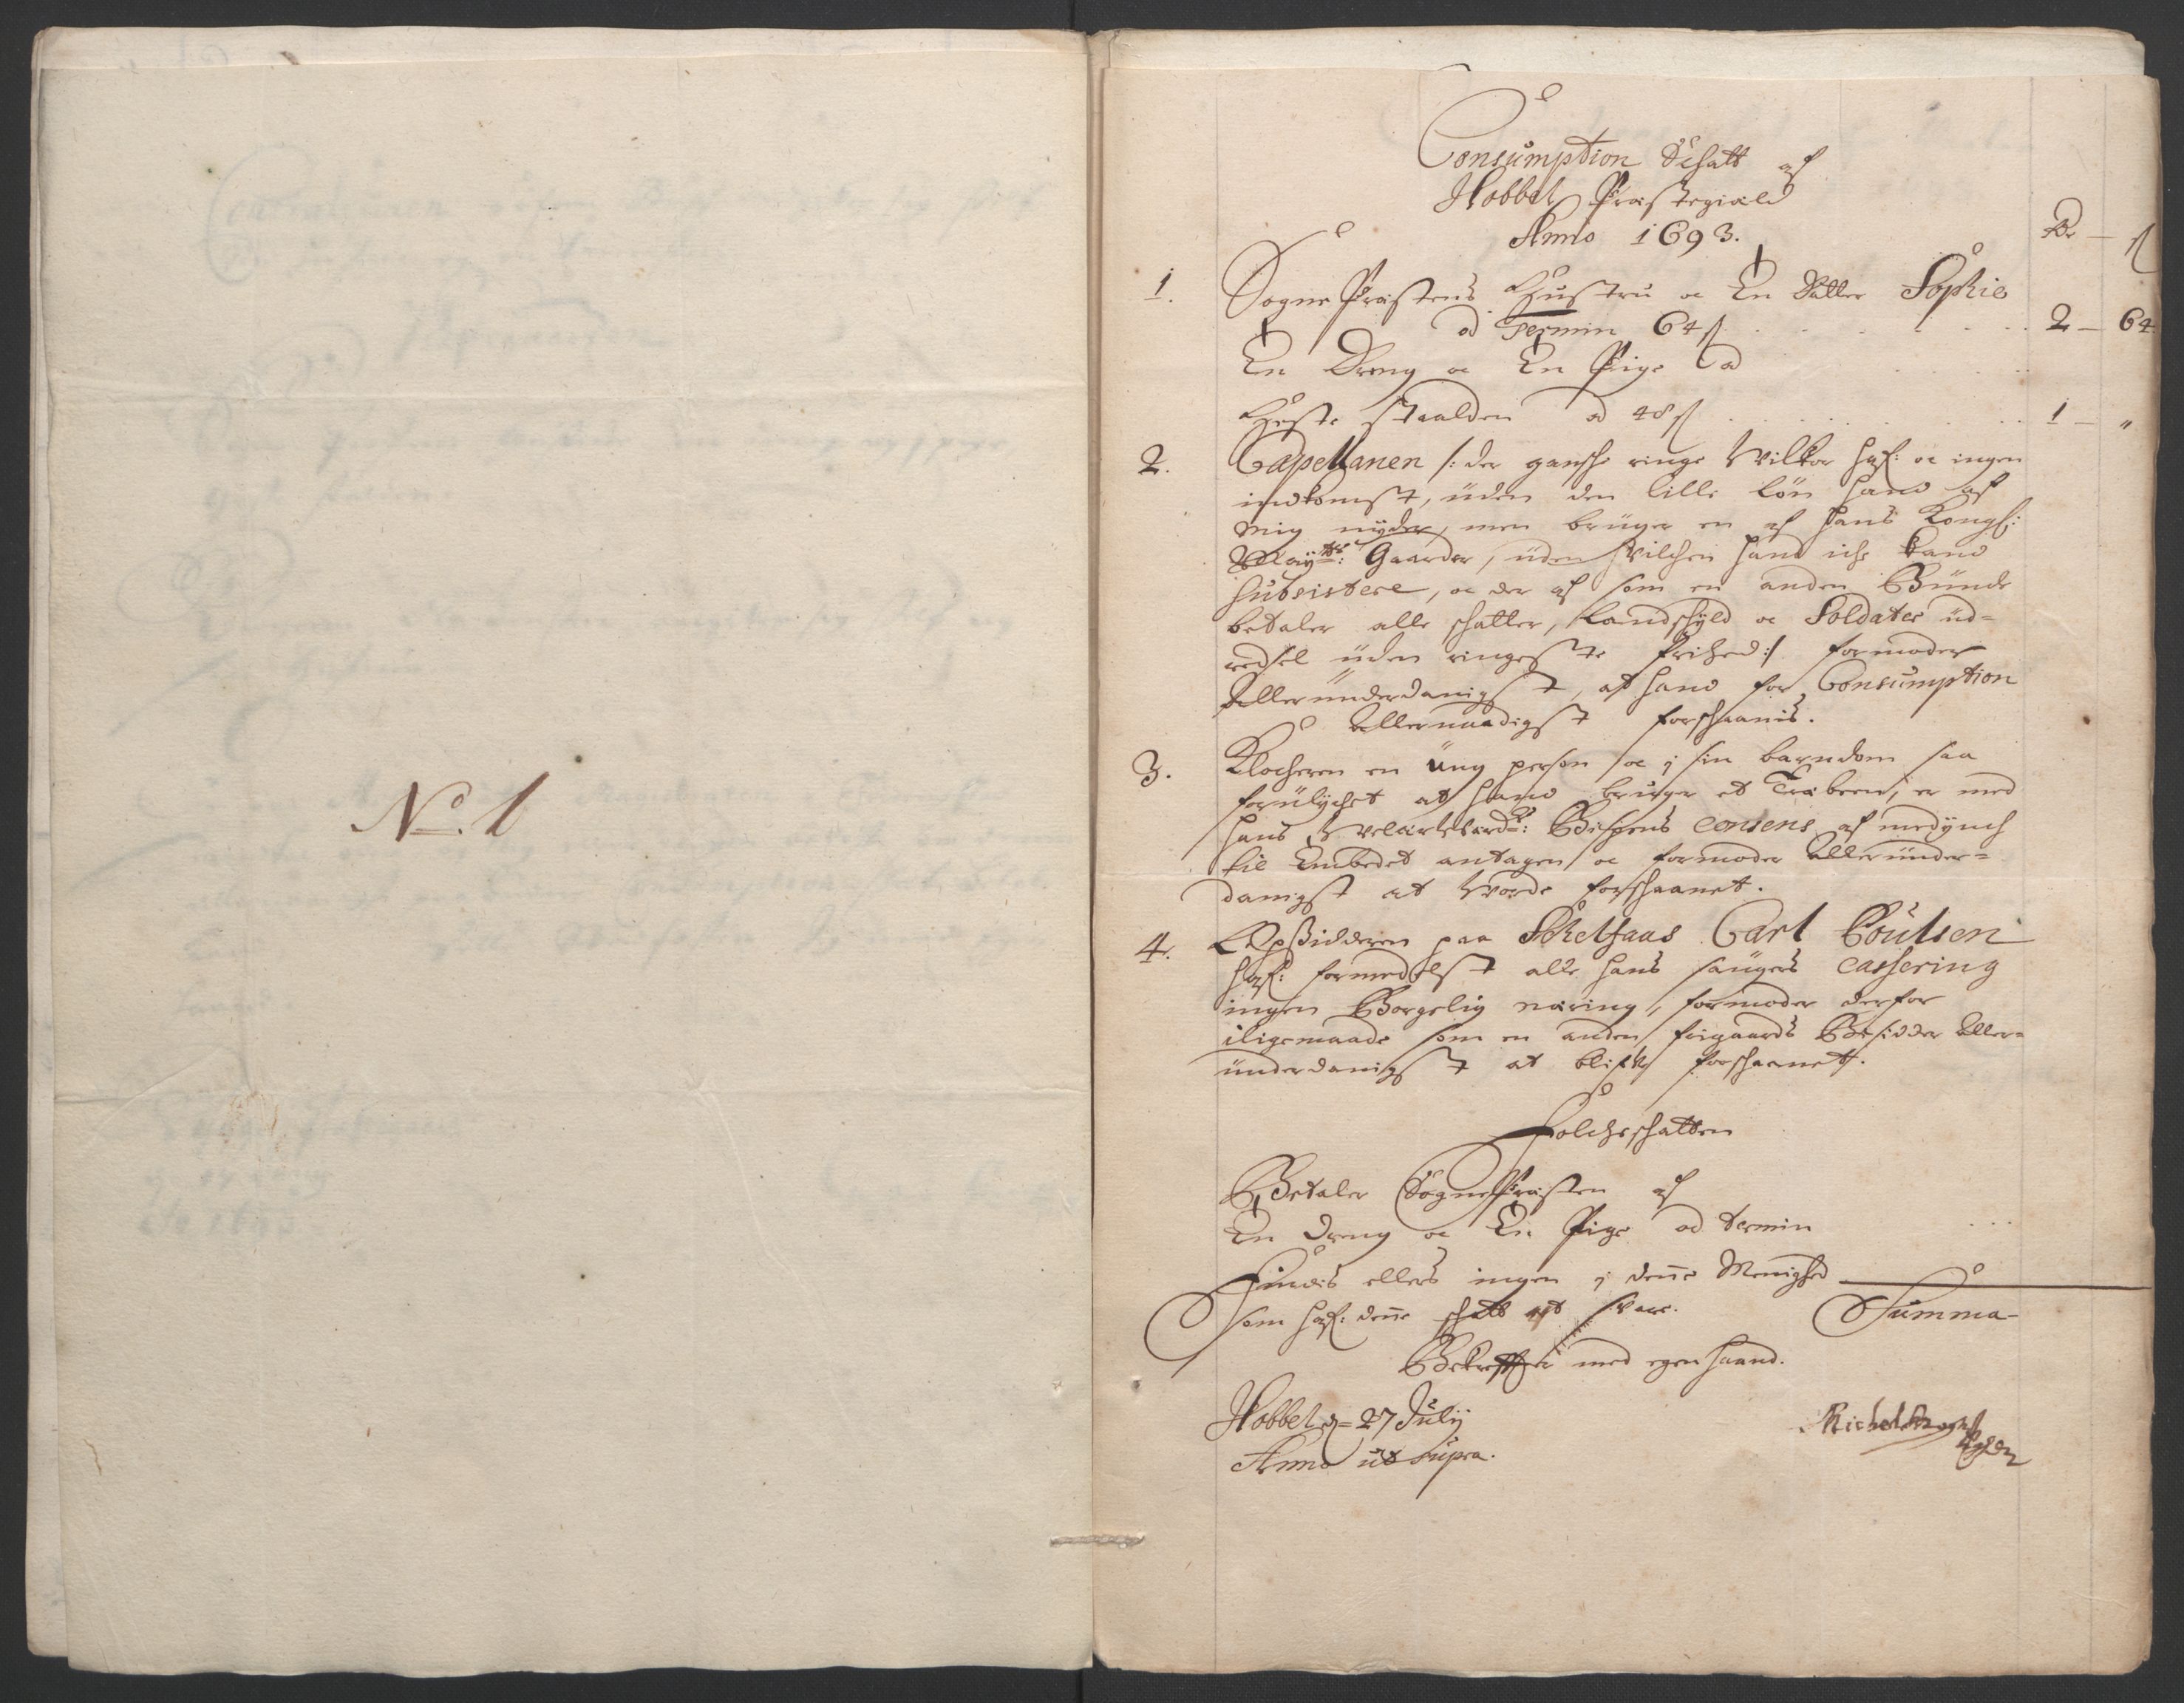 No. 1
Consumption Schatt af
Hobbel Præstegield
Anno 1693.
Rdr — ß
1. Sogne Præstens Hustru oc En Datter Sophie
ad Termin 64 ß . . . . . . . 2 — 64
En Dreng oc En Pige ad
Heste staalden ad 48 ß . . . . . . . 1 — "
2. Capellanen /: der gansche ringe Vilkor haf: oc ingen
indkomst, uden den lille løn hand af
mig nyder, men bruger en af hans Kongl:
Mayts: Gaarder, uden hvilchen hand iche kand
subsistere, oc der af som en anden Bunde
betaler alle schatter, Landschyld oc Soldater ud=
redsel uden ringeste frihed :/ formoder
Allerunderdanigst, at hand for Consumption
Allernaadigst forschaanis.
3. Klocheren en ung person oc i sin barndom saa
forulychet at hand bruger et Træbeen, er med
hans Bispens consens af medynch
til Embedet antagen oc formoder Allerunder=
danigst at vorde forschaanet.
4. Opsidderen paa Carl Poulsen
haf: formedelst alle hans saugers cassering
ingen Borgelig næring, formoder derfor
iligemaade som en anden frigaards Besidder Aller=
underdanigst at blifve forschaanet.
Folcheschatten
Betaler SognePræsten af
En Dreng oc En Pige ad termin . . .
Findis ellers ingen i denne Menighed
som haf: denne schatt at svare. Summa-
Bekreftes med egen haand.
Hobbel d= 27 Julij
Anno ut supra.